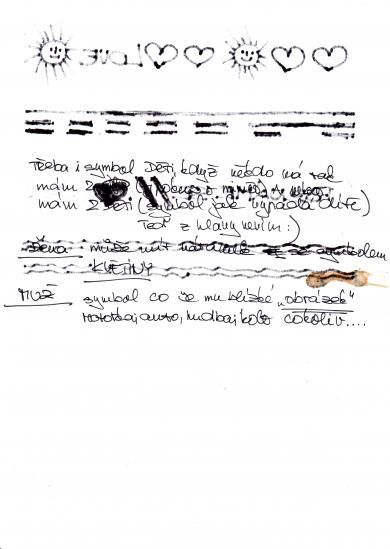 LOVE
Třeba i symbol Děti, když někdo má rád
mám 2
mám 2 děti (symbol jak vypadá dítě)
teď z hlavy nevím :)
Žena může mít náramek se symbolem
KVĚTINY
MUŽ symbol co je mu blízké „obrázek"
motorka, auto, hudba, kolo cokoliv....